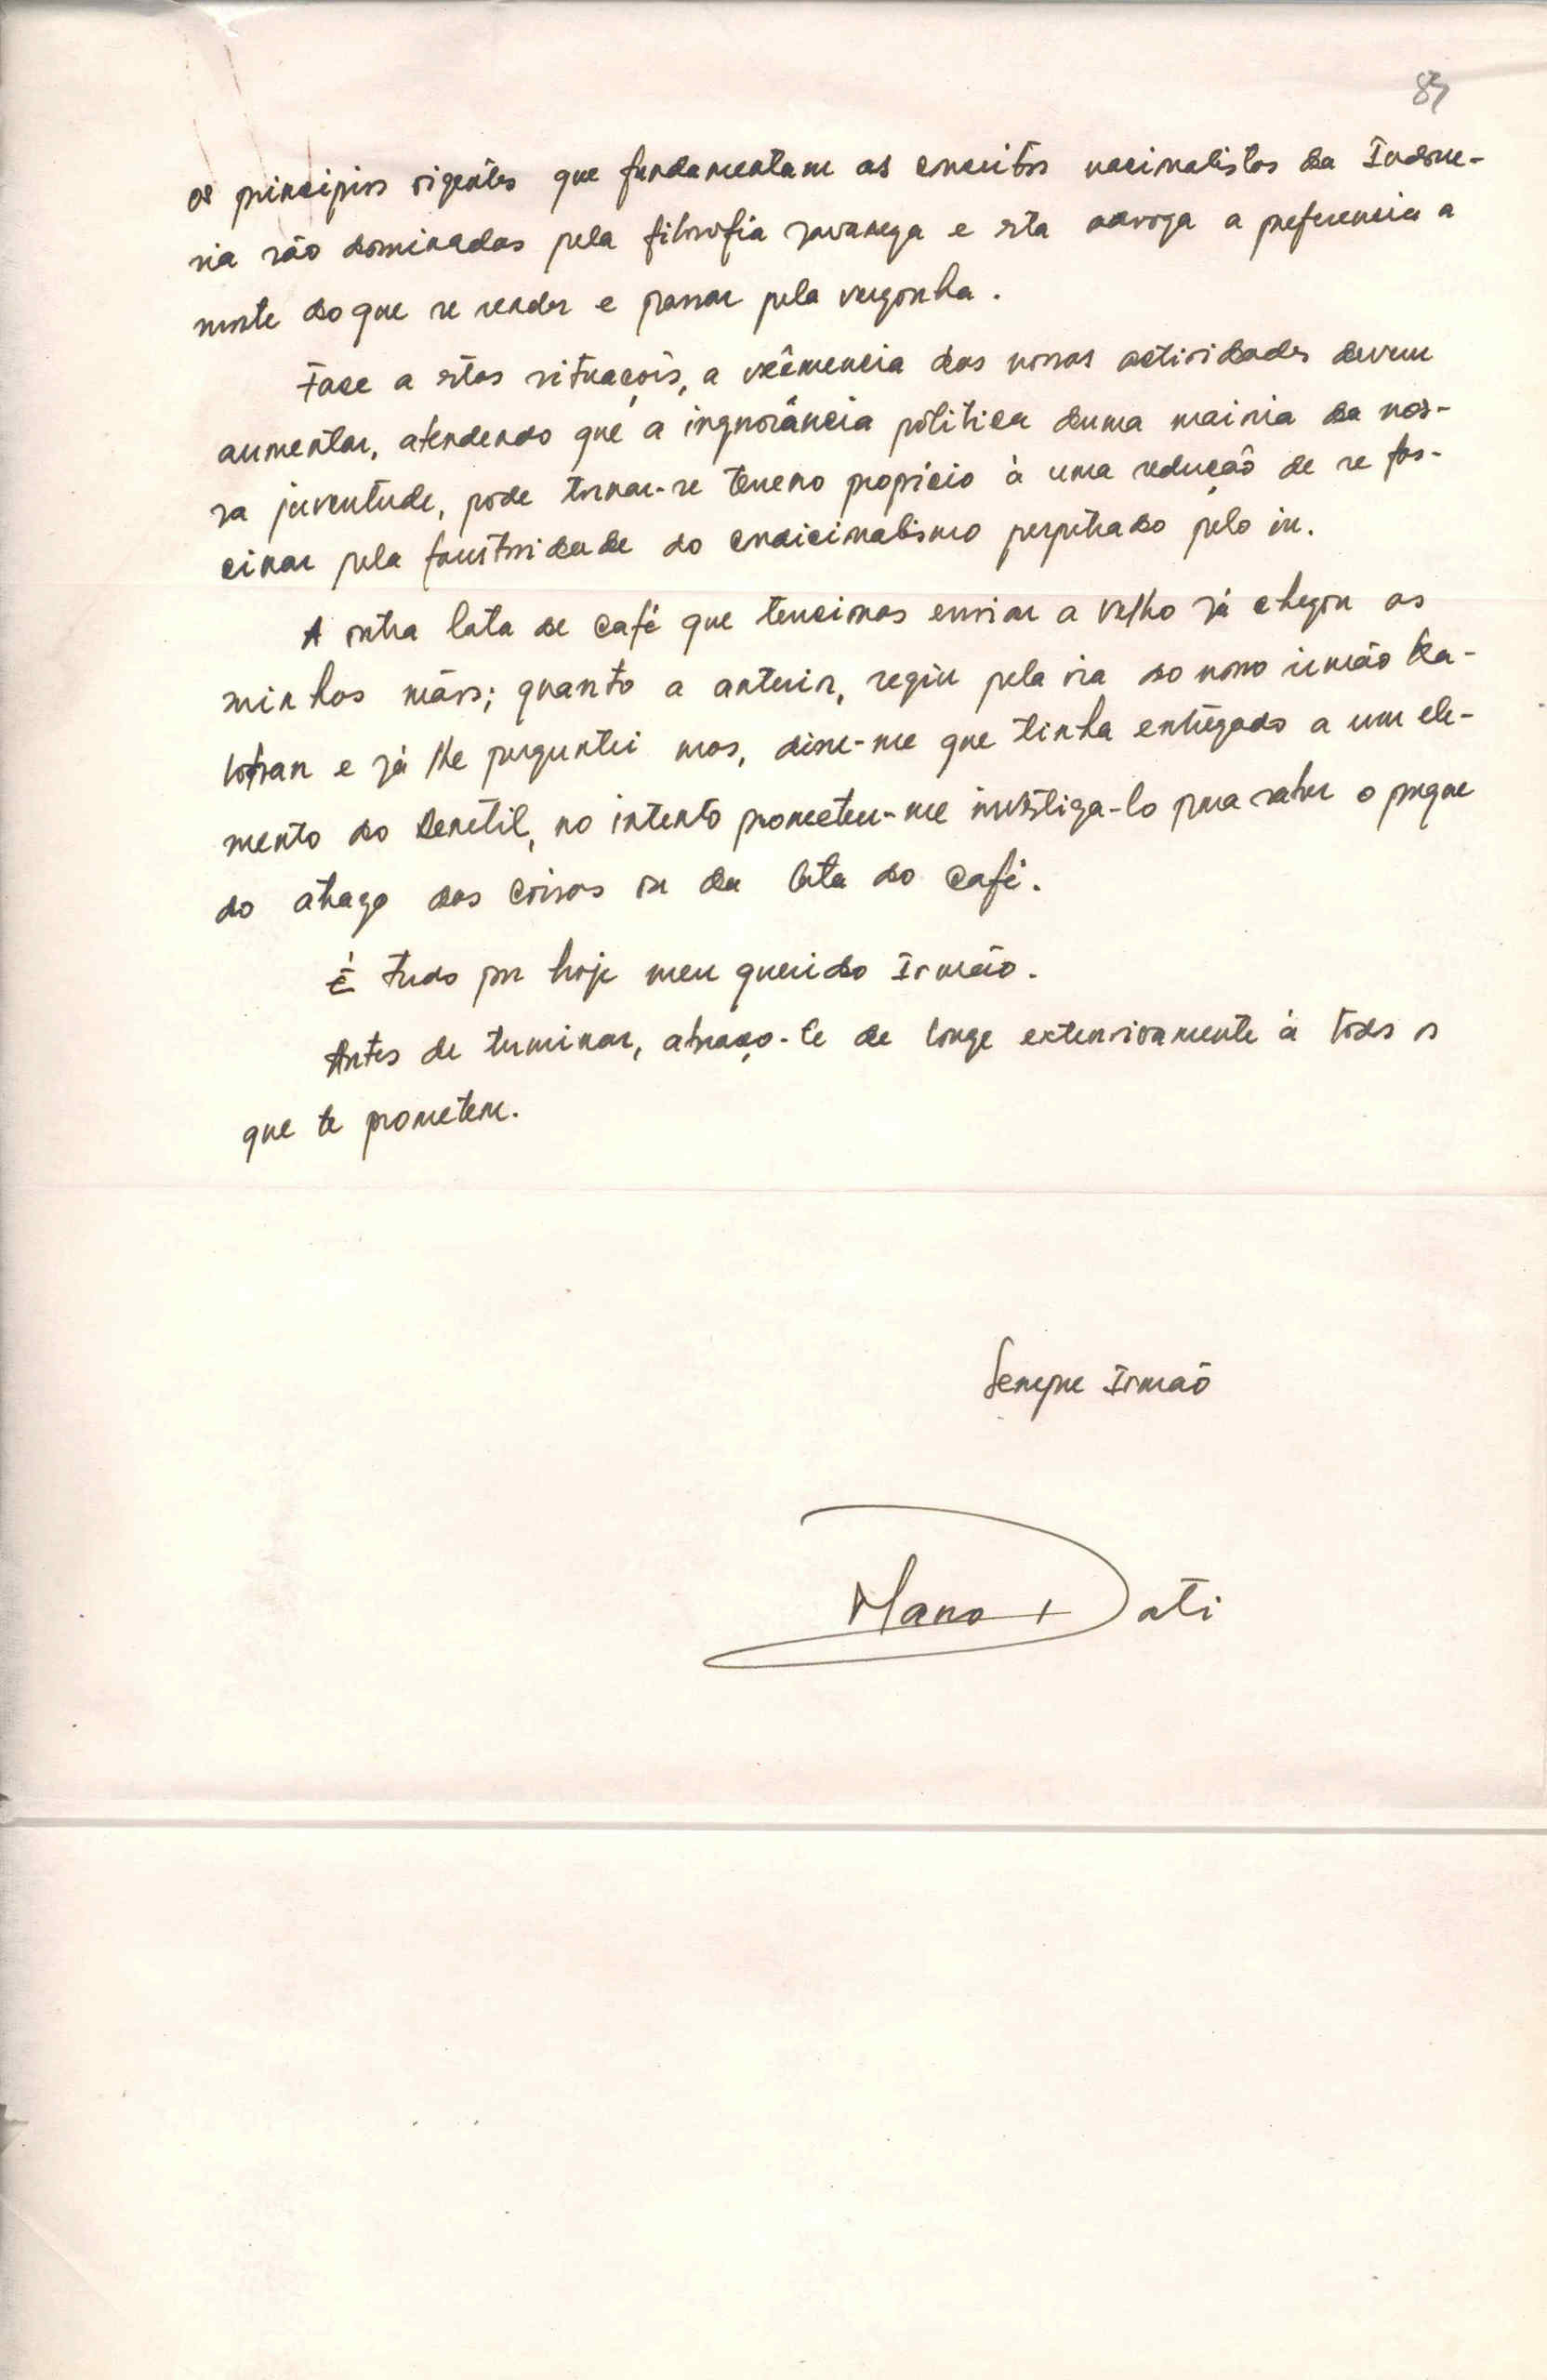 87
os principios vigentes que fundamentam os conceitos nacionalistas da Indone-
sia são dominadas pela filosofia javaneza e esta advoga a preferencia a
morte do que se render e passar pela vergonha.
Face a estas situações, a veêmencia das nossas actividades devem
aumentar, atendendo que a ingnorância politica duma maioria da nos-
sa juventude, pode tornar-se terreno propício à uma redução de se fas-
cinar pela faustosidade do condicionalismo perpetrado pelo in.
A outra lata de café que tencionas enviar a velho já chegou as
minhas mãos; quanto a anterior, seguiu pela via do nosso irmão
e já lhe perguntei mas, disse-me que tinha entregado a um ele-
mento do Renetil, no intento prometeu-me investiga-lo para saber o porque
do atrazo das coisas ou da lata do café.
É tudo por hoje meu querido Irmão.
Antes de terminar, abraço-te de longe extensivamente à todos os
que te prometem.
Sempre Irmão
Mano Dati